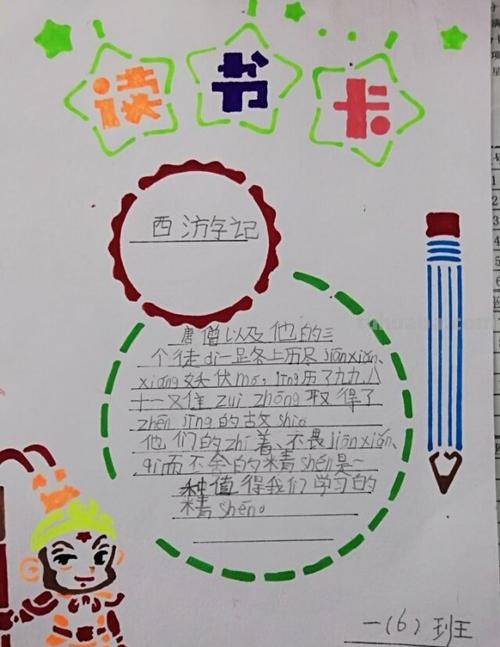 读书卡
西游字记
唐僧以及他的三
个徒di一足各上历尽jiānxiǎn、
xiáng妖伏mó,jīng历了九九八
十一又隹zuì zhōng取得了
zhēn jīng的故shio
他们的zhí着、不畏jiānxiǎn、
qì而不舍的精shén是一
种值得我们学习的
精shéno
一(6)班王